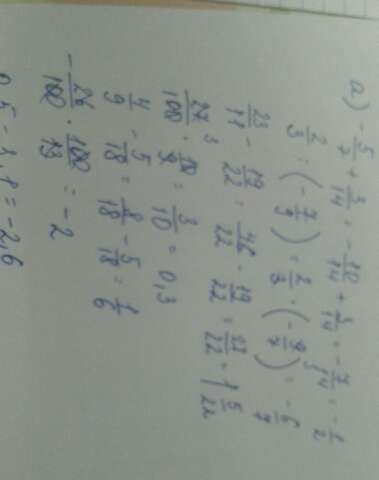 а) -5/7 + 3/14 = -10/14 + 3/14 = -7/14 = -1/2
2/3 : (-7/9) = 2/3 · (-9/7) = -6/7
23/11 - 19/22 = 46/22 - 19/22 = 27/22 = 1 5/22
27/100 · 10/9 = 3/10 = 0,3
4/9 - 5/18 = 8/18 - 5/18 = 1/6
-26/100 · 100/13 = -2
= -2,6